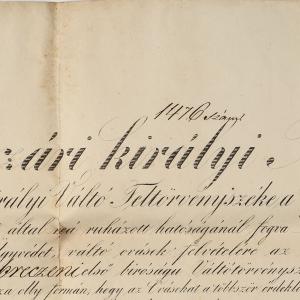 1476 szám
ári királyi
rályi Váltó Feltörvényszéke a
által reá ruházott hatóságánál fogra
gyvédet, váltó óvások felvételére az
breczeni első birósági Váltótörvénysz
za olly formán, hogy az Óvásokat a többször érdekl